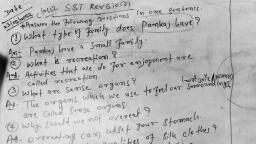 Date
Class SST Revision
Answer the following questions in one sentence.
① What type of family does Pankaj have?
Ans- Pankaj have a Small family.
② What is recreation?
Ans- Activities that we do for enjoyment are
called recreation.
③ What are sense organs?
Ans- The organs which we use to find our surroundings
are called Sense organs
④ Why should we not overeat?
Ans. overeating can upset your stomach.
of Silk clothes?